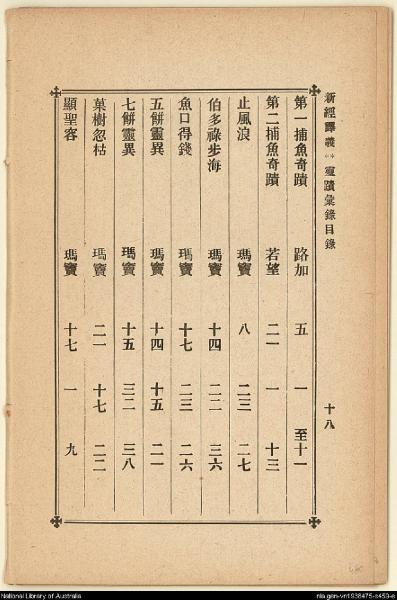 新經譯義 靈蹟彙錄目錄 十八
第一捕魚奇蹟 路加 五 一 至十一
第二捕魚奇蹟 若望 二一 一 十三
止風浪 瑪竇 八 二三 二七
伯多祿步海 瑪竇 十四 二二 三六
魚口得錢 瑪竇 十七 二三 二六
五餅靈異 瑪竇 十四 十五 二一
七餅靈異 瑪竇 十五 三二 三八
菓樹忽枯 瑪竇 二一 十七 二二
顯聖容 瑪竇 十七 一 九
National Library of Australia
nla.gen-vn1938475-s459-e